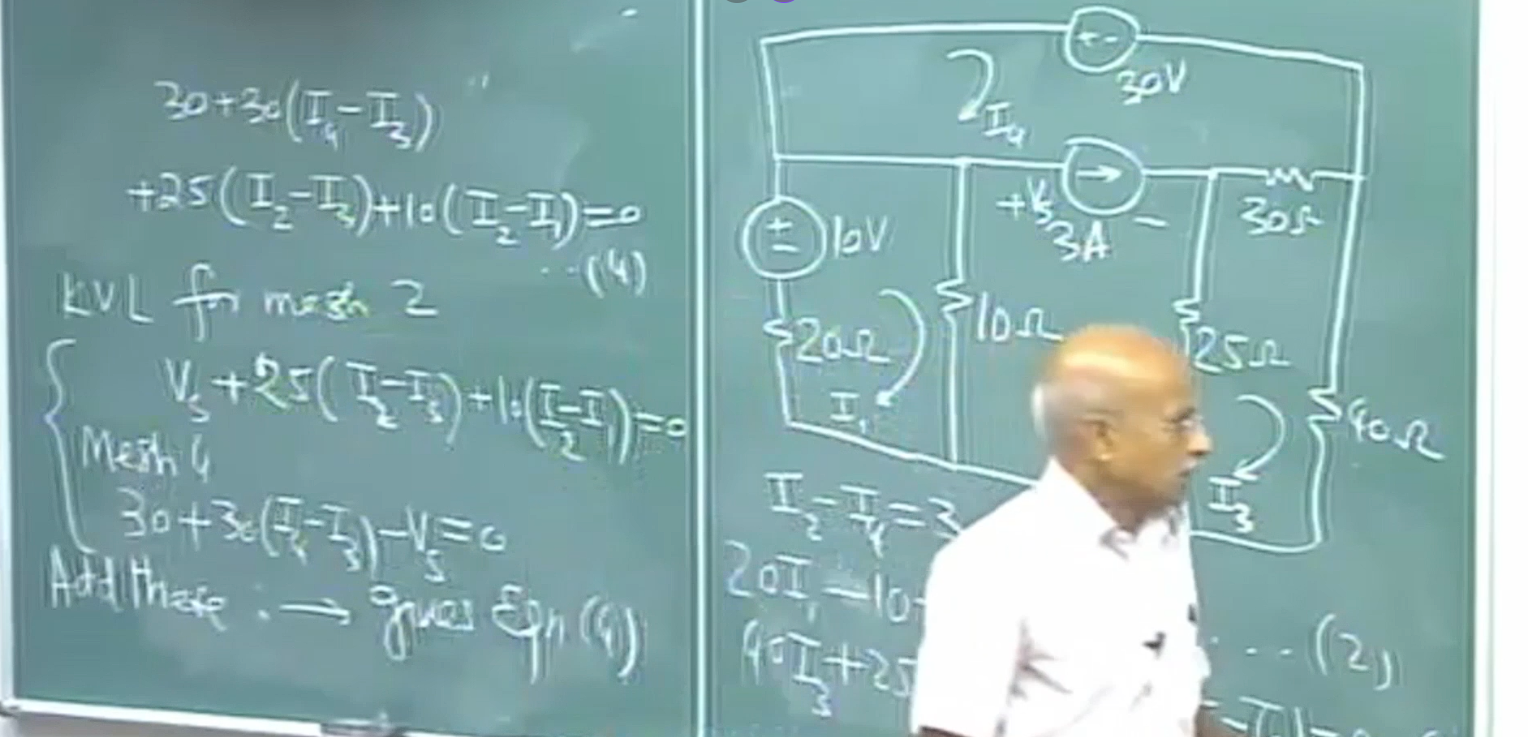 30+30(I₄-I₃)
+25(I₂-I₃)+10(I₂-I₁)=0
...(4)
KVL for mesh 2
Vₛ+25(I₂-I₃)+10(I₂-I₁)=0
Mesh 4
30+30(I₄-I₃)-Vₛ=0
Add these : → gives Eqn (4)
+ -
30V
I₄
+ Vₛ -
3A
30Ω
+
-
10V
20Ω
I₁
10Ω
25Ω
I₃
40Ω
I₂-I₄=3
20I₁-10+
...(2)
40I₃+25